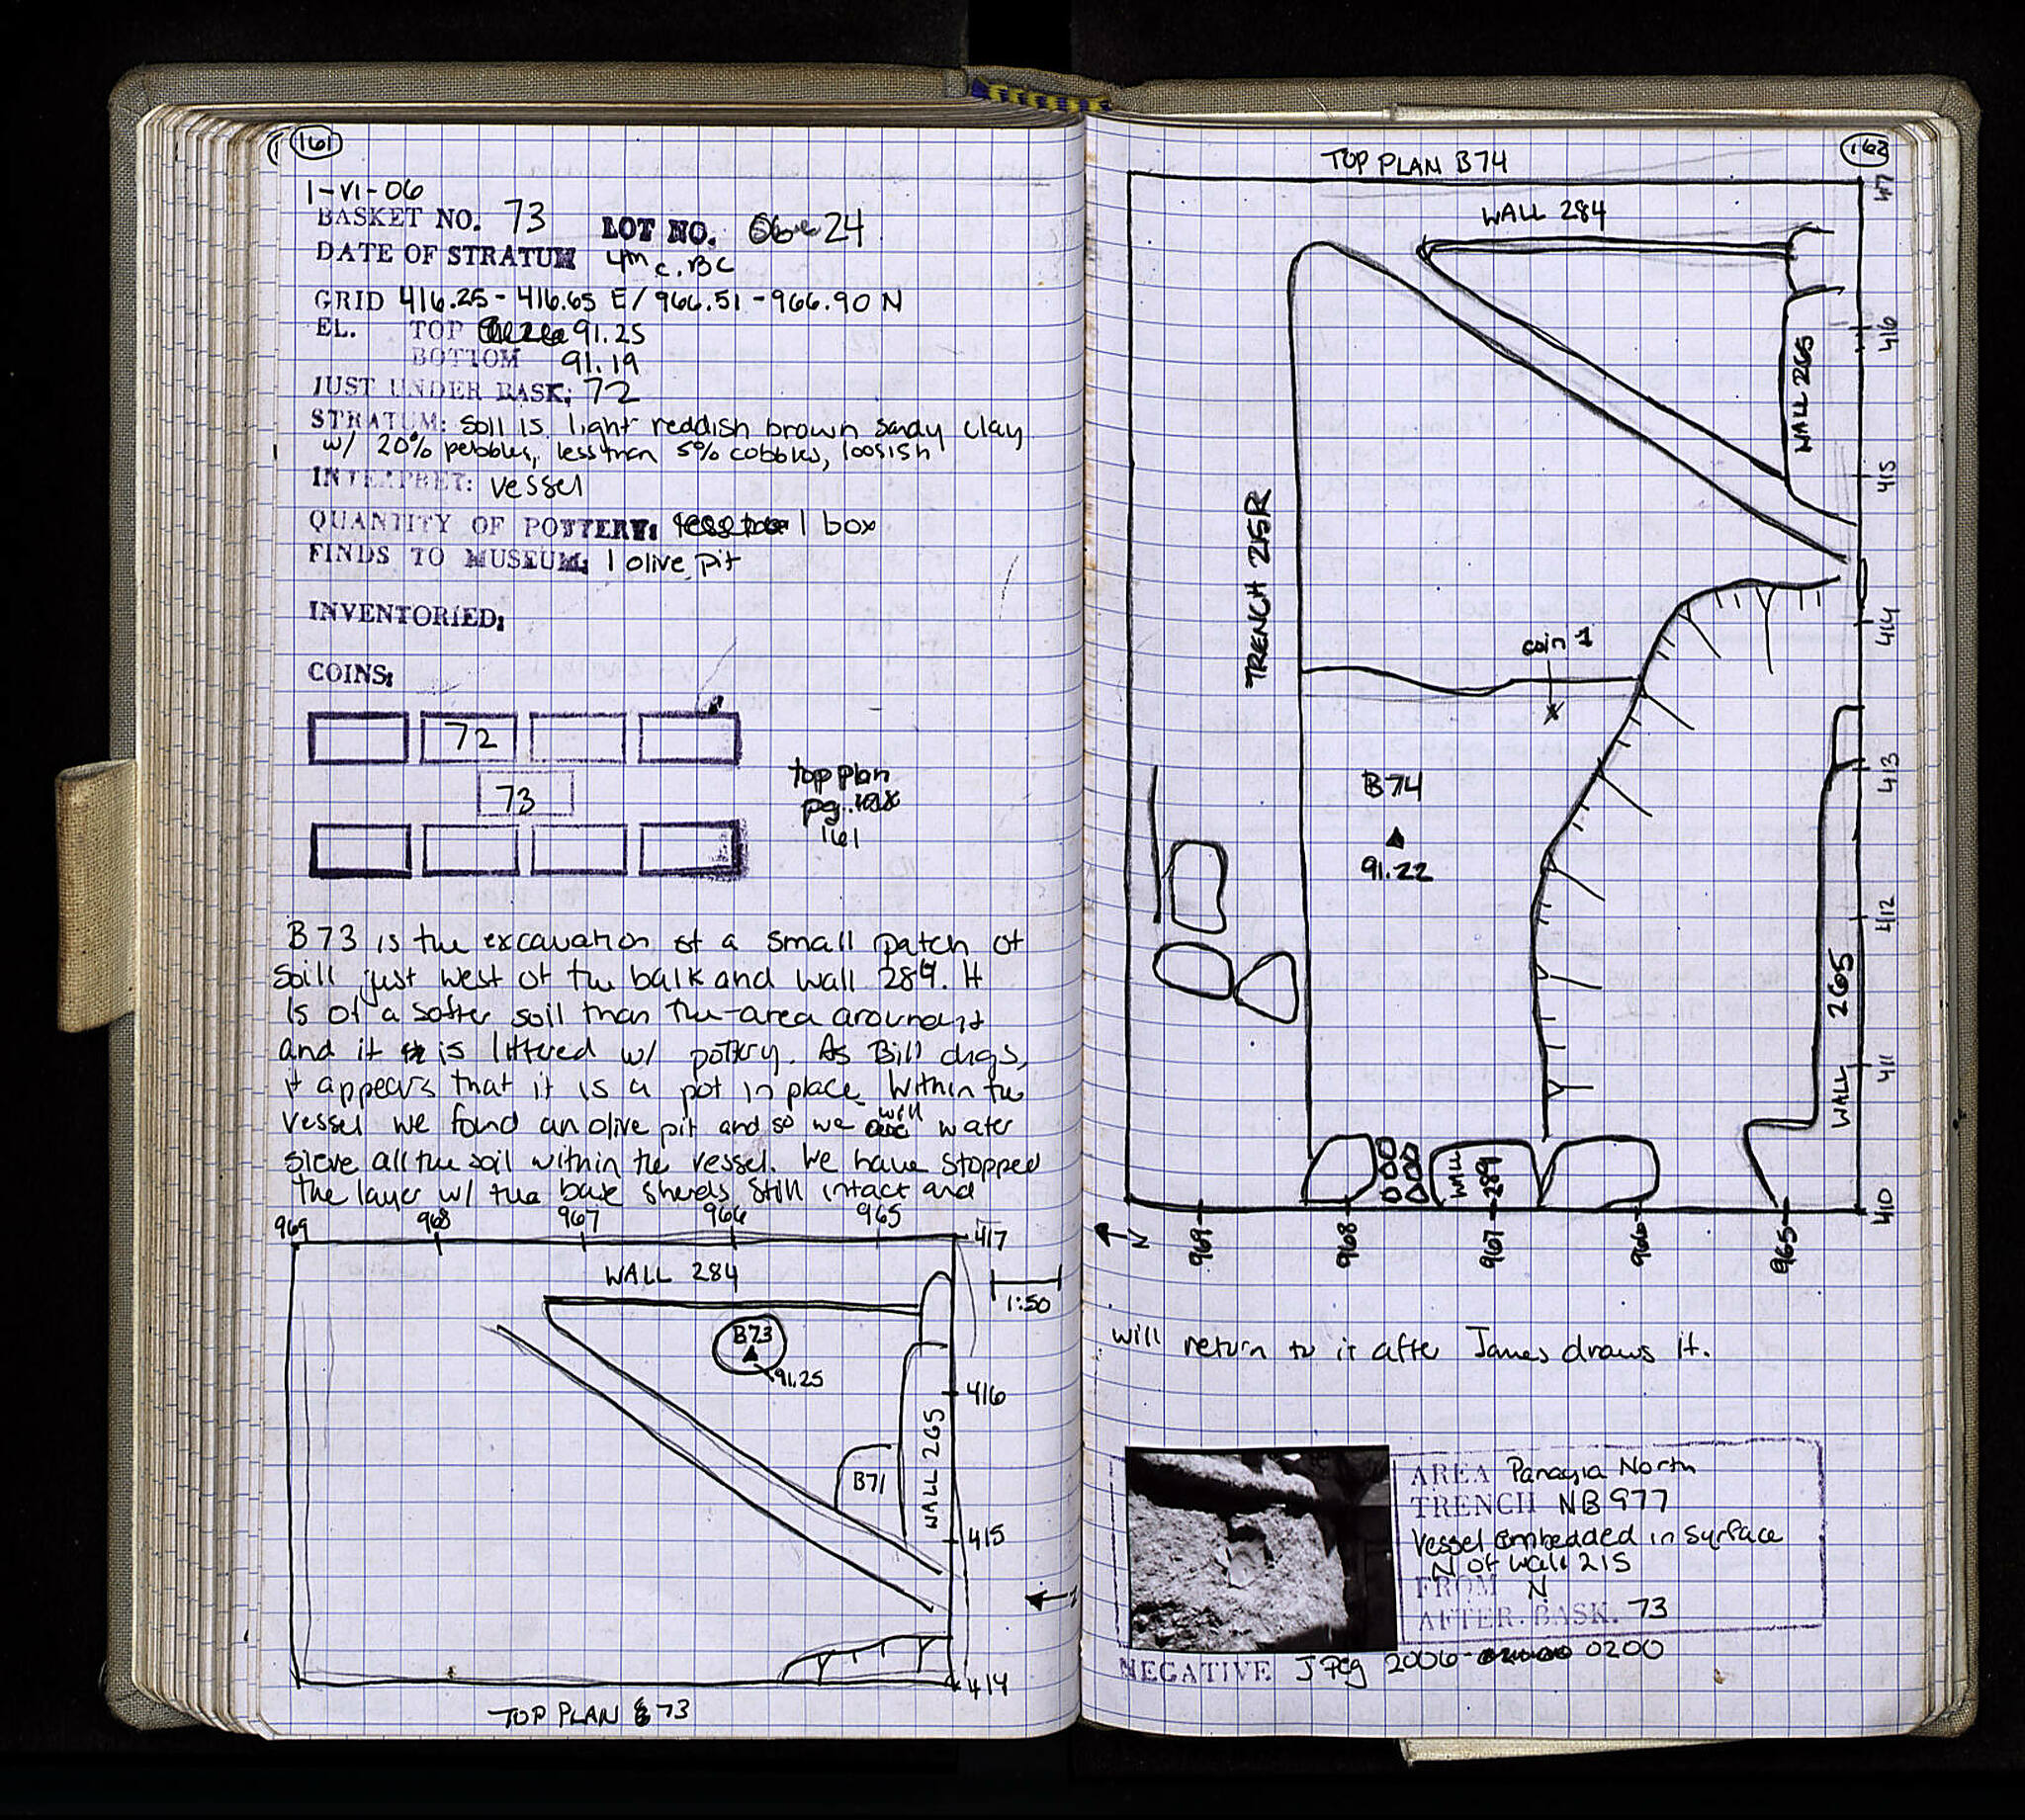 161
1-VI-06
BASKET NO. 73 LOT NO. 24
DATE OF STRATUM 4th c. BC
GRID 416.25-416.65 E/966.51-966.90 N
EL. TOP 91.25
BOTTOM 91.19
JUST UNDER BASK: 72
STRATUM: soil is light reddish brown sandy clay
w/ 20% pebbles, less than 5% cobbles, loosish
INTERPRET: vessel
QUANTITY OF POTTERY: 1 box
FINDS TO MUSEUM: 1 olive pit
INVENTORIED:
COINS:
72
73
top plan
pg.
161
B73 is the excavation of a small patch of
soill just west of the balk and wall 284. It
is of a softer soil than the area around it
and it is littered w/ pottery. As Bill digs,
it appears that it is a pot in place. Within the
vessel we found an olive pit and so we will water
sieve all the soil within the vessel. We have stopped
the layer w/ the base sherds still intact and
969 968 967 966 965
417
WALL 284
1:50
B73
91.25
416
WALL 265
B71
415
414
TOP PLAN B73
162
TOP PLAN B74
417
WALL 284
416
WALL 265
415
TRENCH 215R
414
coin 1
413
B74
91.22
412
WALL 265
411
WALL 289
410
N
969 968 967 966 965
will return to it after James draws it.
AREA Panayia North
TRENCH NB 977
Vessel embedded in surface
N of wall 215
FROM N
AFTER BASK. 73
NEGATIVE JPeg 2006- 0200